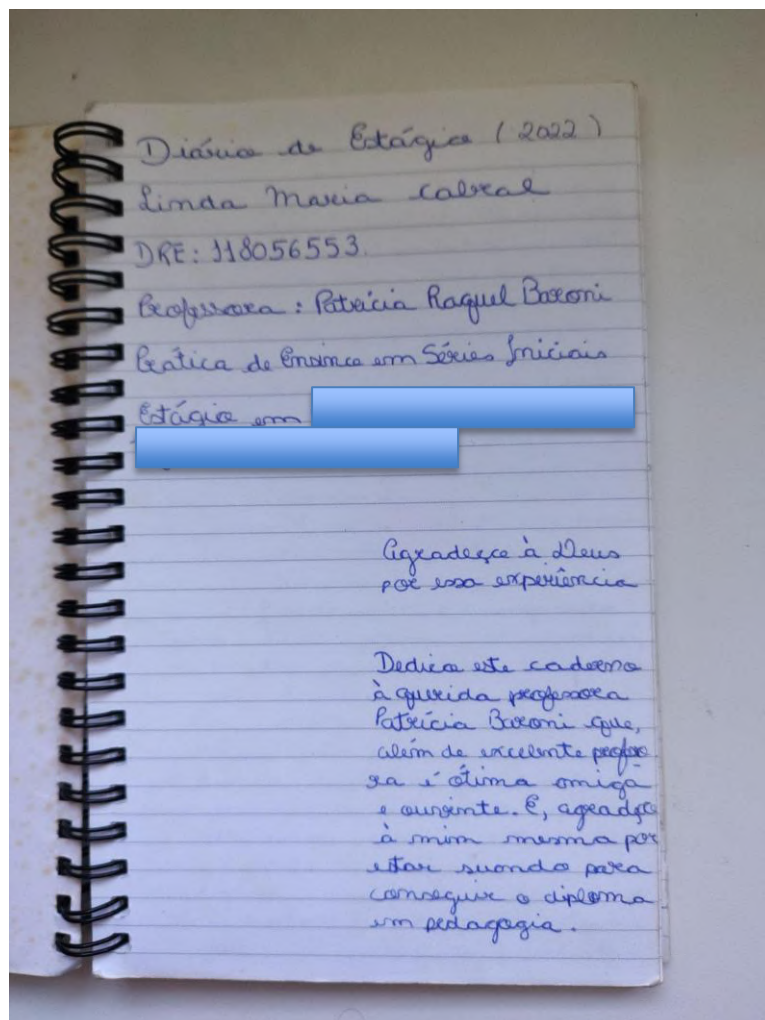 Diário de Estágio (2022)
Linda Maria Cabral
DRE: 118056553.
Professora: Patrícia Raquel Baroni
Prática de Ensino em Séries Iniciais
Estágio em
Agradeço à Deus
por essa experiência
Dedico este caderno
à querida professora
Patrícia Baroni que,
além de excelente profso
ra é ótima amiga
e ouvinte. E, agradeço
à mim mesma por
estar suando para
conseguir o diploma
em pedagogia.